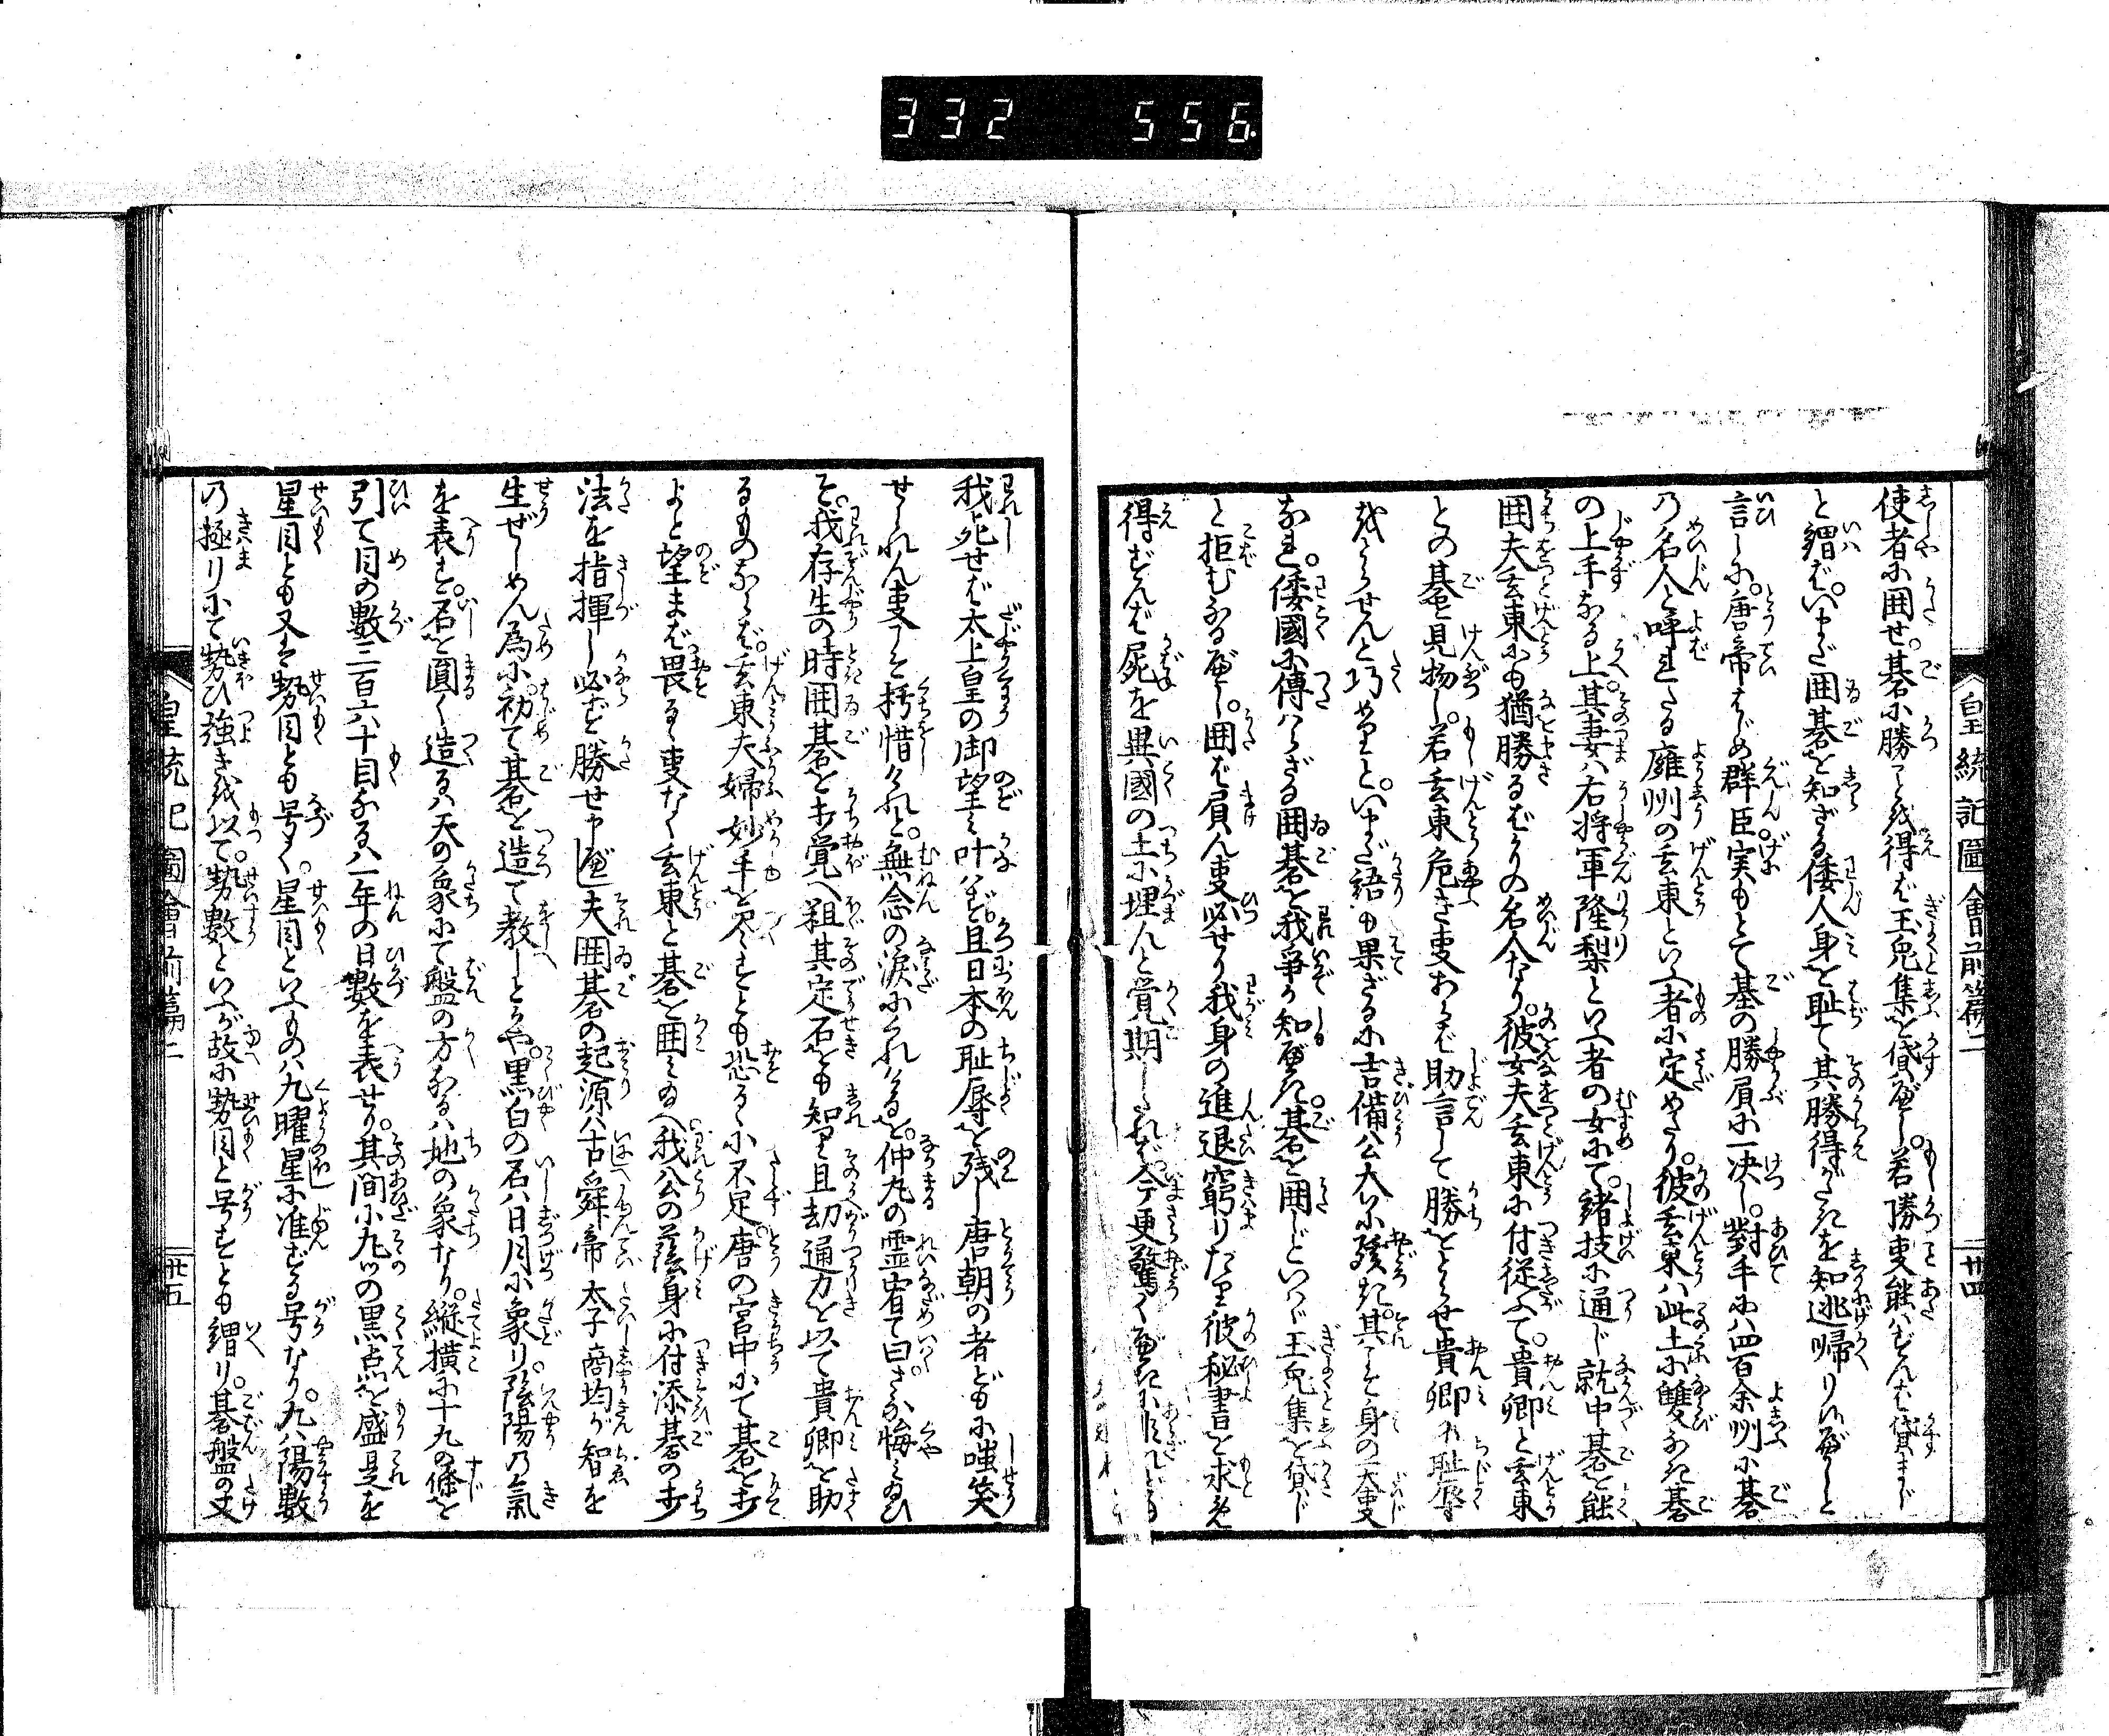 332 556
皇統記圖會前篇二
廿四
使者に囲せ。碁に勝ことを得ば玉兎集を貸べし。若勝事能はずんば貸まじ
と謂ば。いまだ囲碁を知ざる倭人身を耻て其勝得がたきを知逃帰り候べしと
言しに。唐帝はじめ群臣。実もとて碁の勝負に一决し。對手には四百余州に碁
の名人と呼れたる雍州の玄東といふ者に定めたり。彼玄東は此土に雙なき碁
の上手なる上。其妻は右将軍隆梨といふ者の女にて。諸技に通じ就中碁を能
囲夫玄東にも猶勝るばかりの名人たり。彼女夫玄東に付従ふて。貴卿と玄東
との碁を見物し。若玄東危き事あらば助言して勝をとらせ貴卿に耻辱
をとらせんと巧めりと。いまだ語も果ざるに吉備公大に駭き。其こそ身の一大事
なれ。倭國に傳はらざる囲碁を我争か知べき。碁を囲じといはゞ玉兎集を貸じ
と拒むなるべし。囲ば負ん事必せり我身の進退窮りたり彼秘書を求め
得ずんば屍を異國の土に埋んと覚期したれば。今更驚くべきに
我死せば太上皇の御望も叶はず。且日本の耻辱を残し唐朝の者どもに嗤笑
せられん事こそ朽惜けれと。無念の涙にくれけるを。仲丸の霊宥て曰。さな悔み給ひ
そ。我存生の時囲碁を打覚へ粗其定石をも知り且刧通力を以て貴卿を助
るものならば。玄東夫婦妙手を尽すとも恐るゝに不足。唐の宮中にて碁を打
よと望まば畏るゝ事なく玄東と碁を囲み給へ。我公の蔭身に付添碁の打
法を指揮し必ず勝せ申べし夫囲碁の起源は古舜帝太子商均が智を
生ぜしめん為に初て碁を造て教しとかや。黒白の石は日月に象り。陰陽の氣
を表す。石を圓く造るは天の象にて盤の方なるは地の象なり。縦横に十九の條を
引て目の數三百六十目なるは一年の日數を表せり。其間に九ツの黒点を盛是を
星目とも又は勢目とも号く。星目といふものは九曜星に准ずる号なり。九は陽數
の極りにて勢ひ強きを以て。勢數といふが故に勢目と号すとも謂り。碁盤の丈
皇統記圖會前篇二
廿五